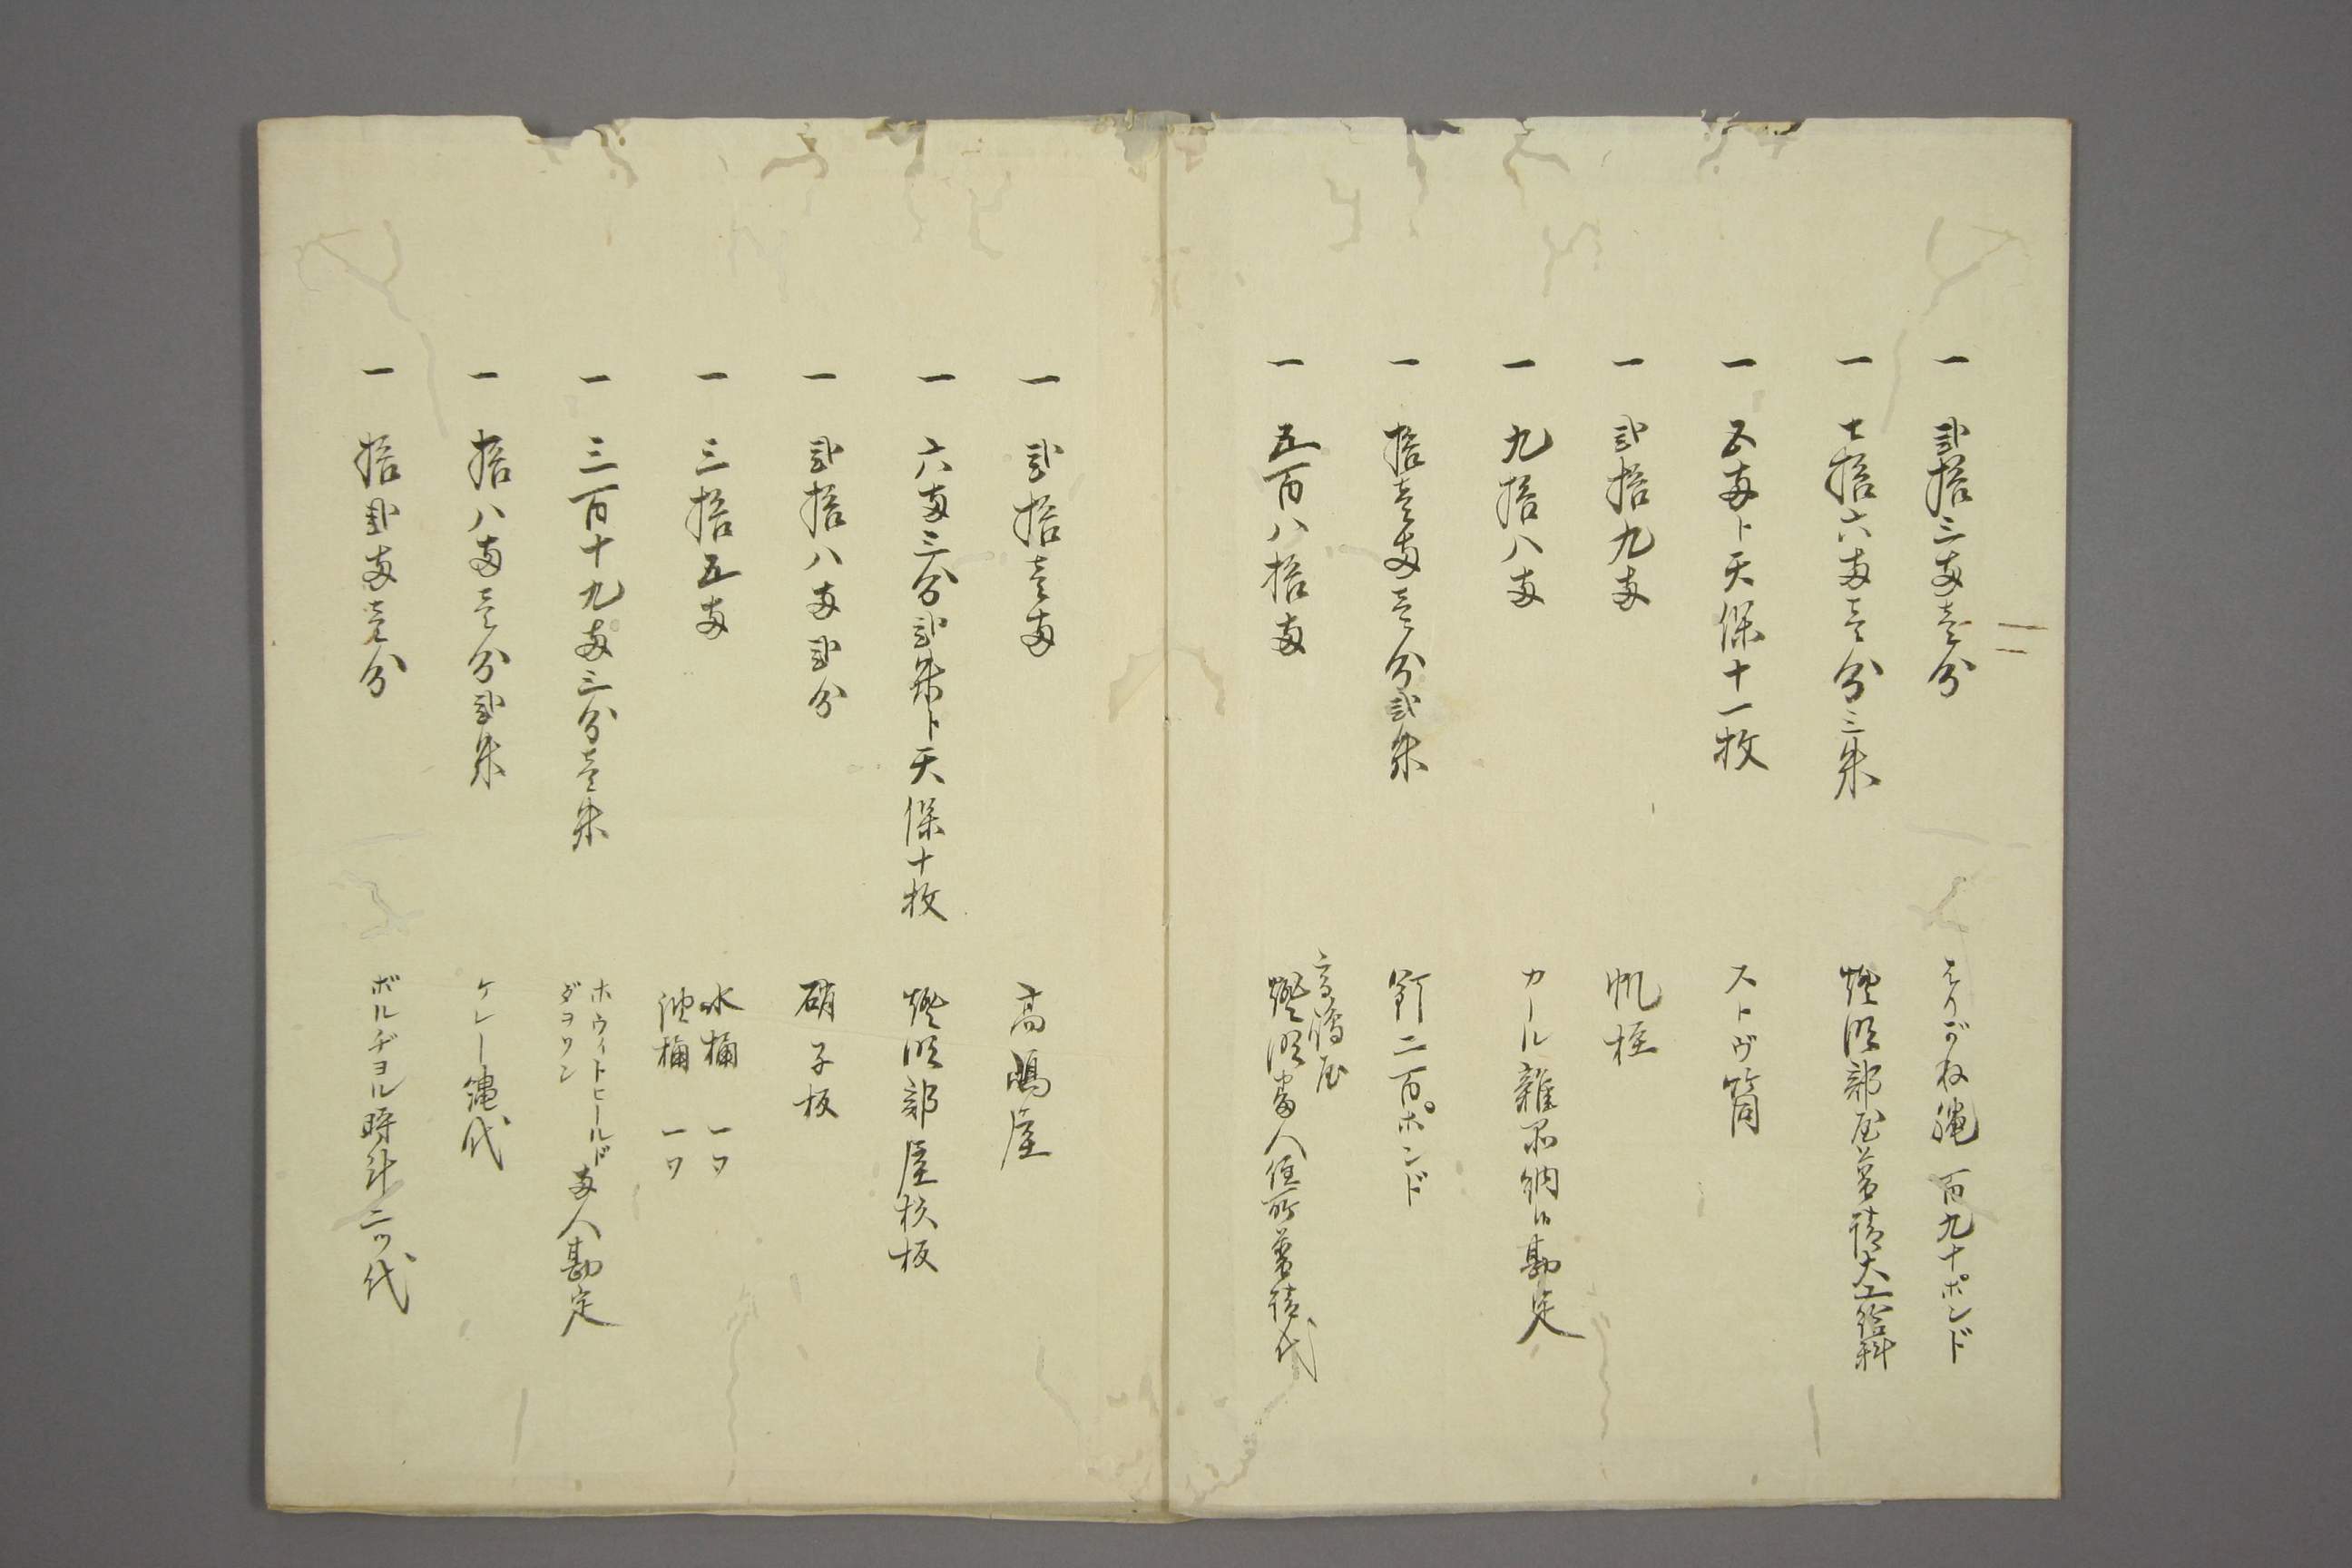 一 弐拾三両壱分 はりがね縄 百九十ポンド
一 七拾六両壱分三朱 燈明部屋普請大工給料
一 五両ト天保十一枚 ストヴ筒
一 弐拾九両 帆柱
一 九拾八両 カール雑品納口勘定
一 拾壱両壱分弐朱 釘二百ポンド
一 五百八拾両 高嶋屋
燈明番人住所普請代
一 弐拾壱両 高嶋屋
一 六両三分弐朱ト天保十枚 燈明部屋杉板
一 弐拾八両弐分 硝子板
一 三拾五両 水桶 一ツ
油桶 一ツ
一 三百十九両三分壱朱 ホウイトヒールド
ダヲソン 両人勘定
一 拾八両壱分弐朱 ケレー縄代
一 拾弐両壱分 ボルヂヨル時計二ツ代